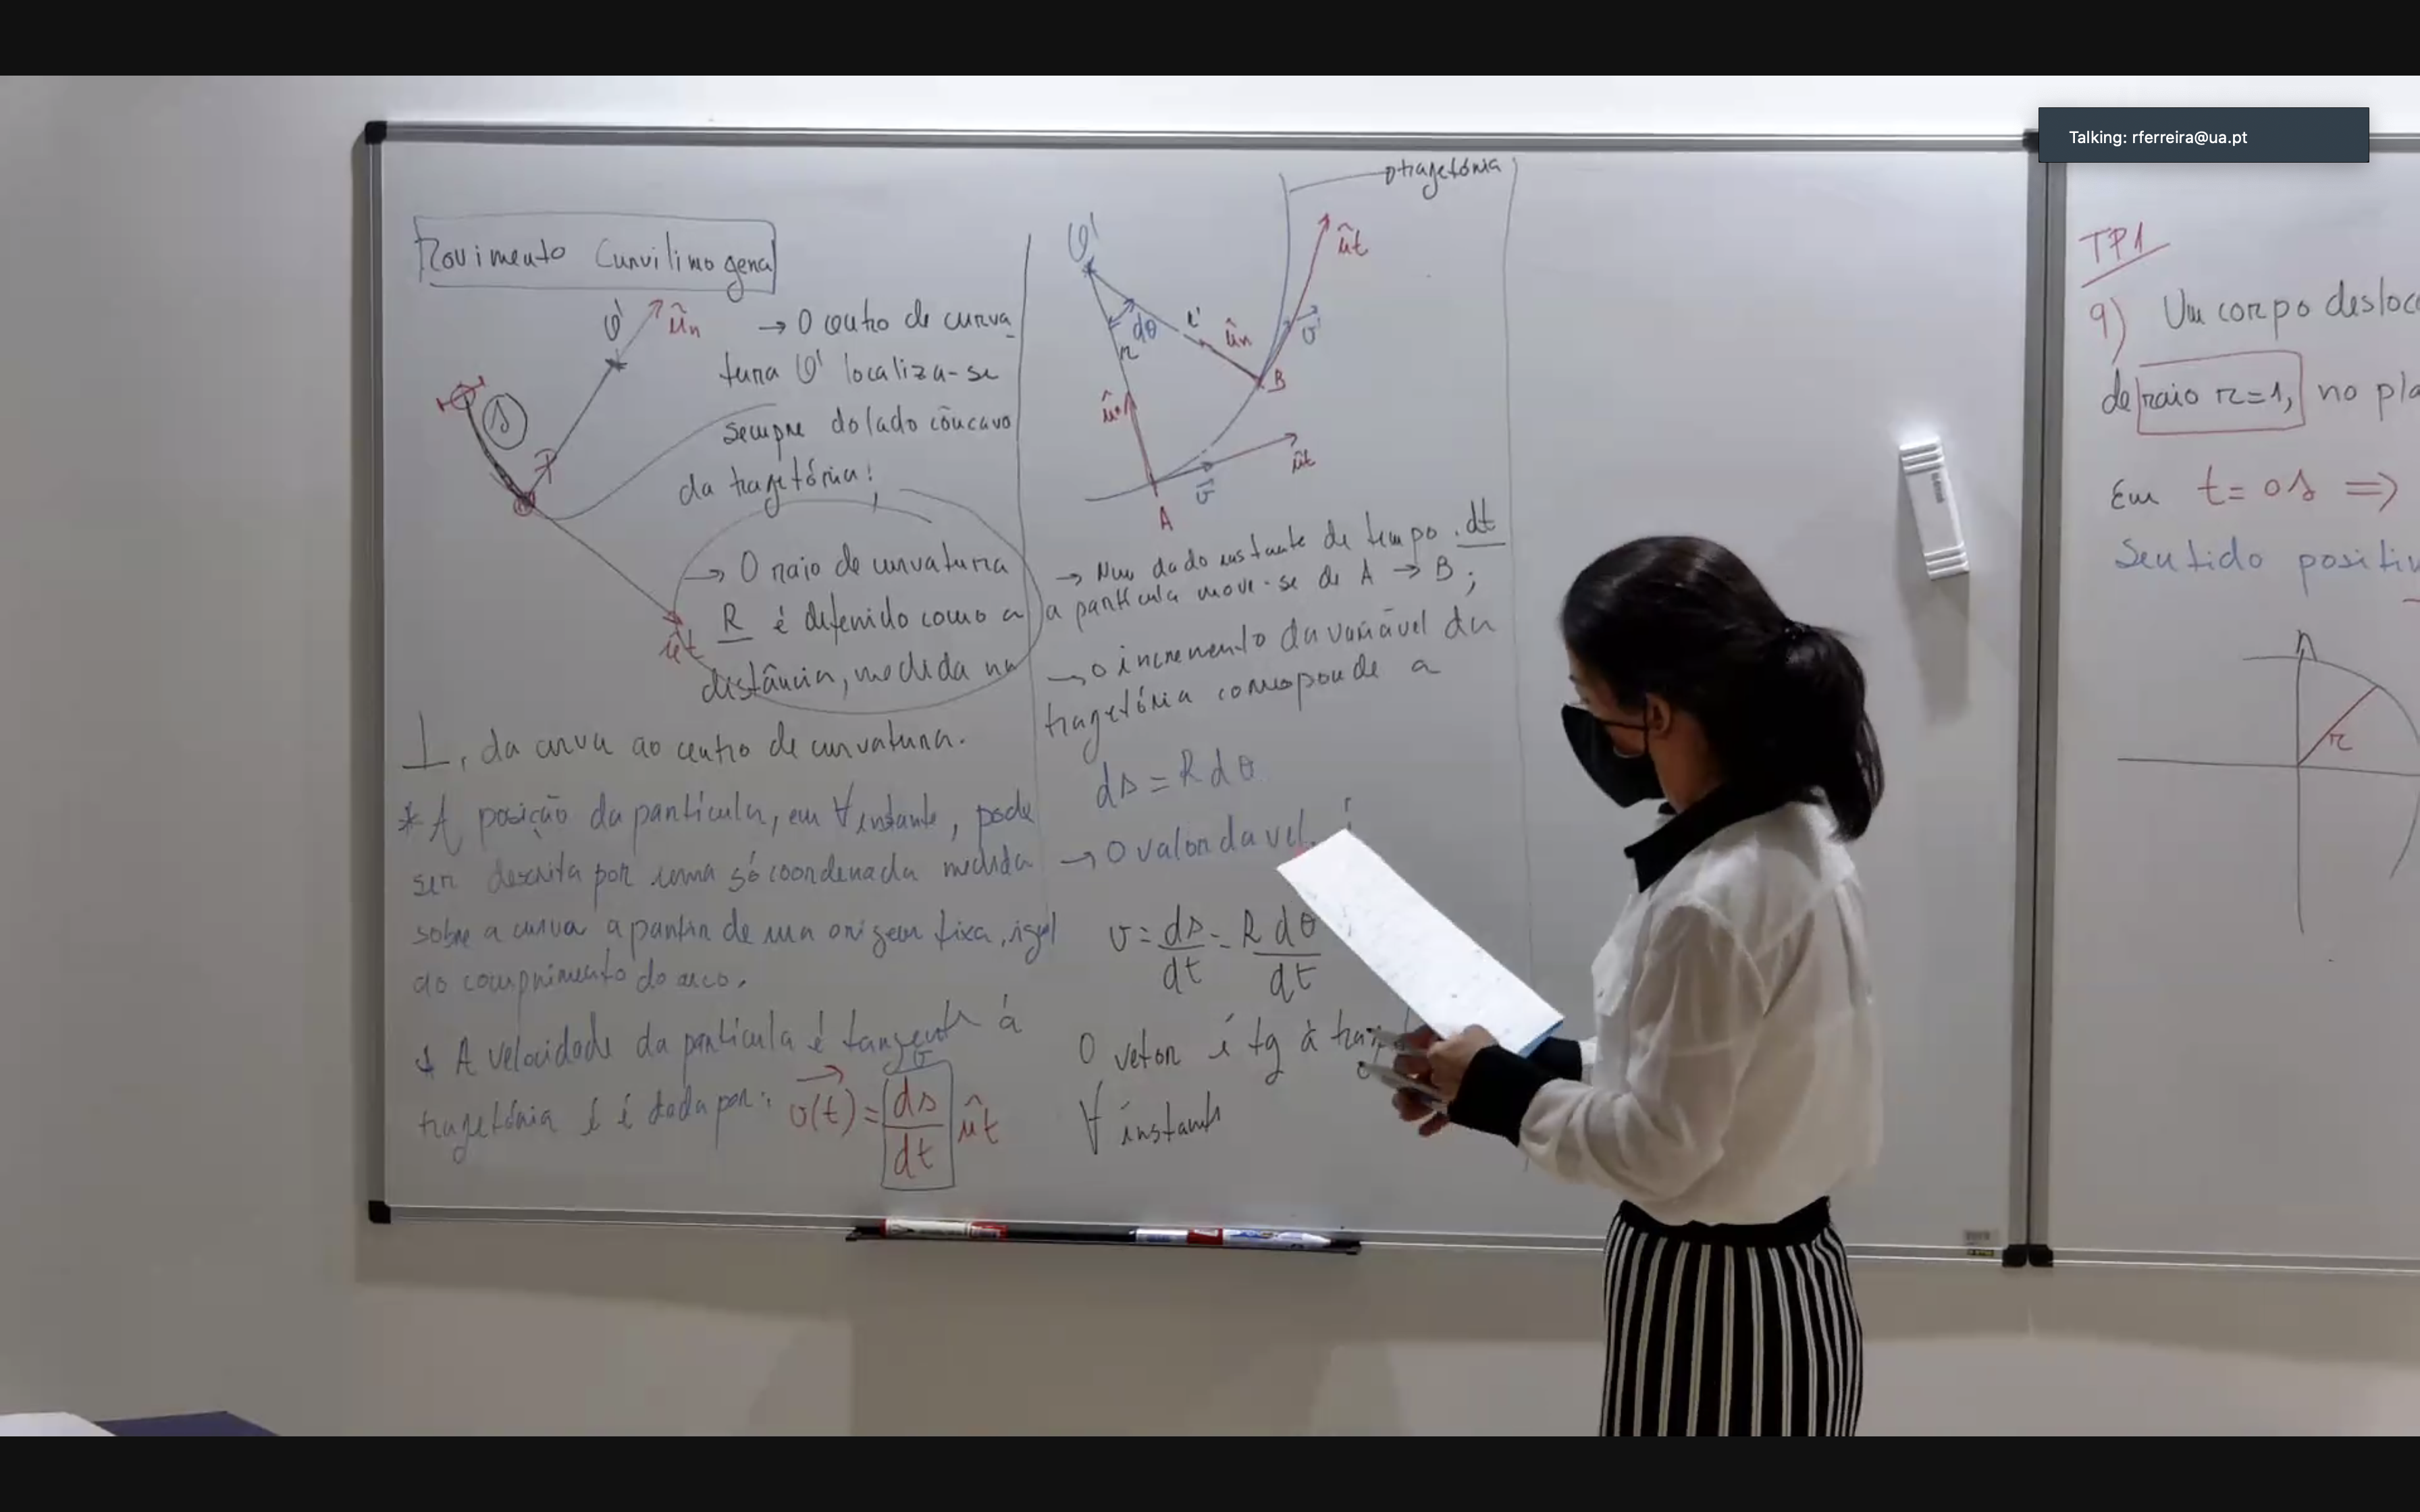 Talking: rferreira@ua.pt
Movimento Curvilíno geral
O'
ûn
→ O centro de curva
tura O' localiza-se
sempre do lado côncavo
da tragetória!
s
P
ût
→ O raio de curvatura
R é defenido como a
distância, medida na
⊥, da curva ao centro de curvatura.
* A posição da partícula, em ∀ instante, pode
ser descrita por uma só coordenada medida
sobre a curva a partir de um origem fixa, igual
ao comprimento do arco.
A velocidade da partícula é tangente à
tragetória é é dada por:
v(t) = ds/dt ût
v
O'
tragetória
ût
dθ
r'
r
ûn
v'
B
ûn
ût
v
A
→ Num dado instante de tempo dt
a partícula move-se de A → B;
→ o incremento da variável da
tragetória corresponde a
ds = R dθ
→ O valor da vel.
v = ds/dt = R dθ/dt
O vetor é tg à
∀ instante
TP1
9) Um corpo desloc
de raio r=1, no pla
Em t=0s ⇒
Sentido positiv
r